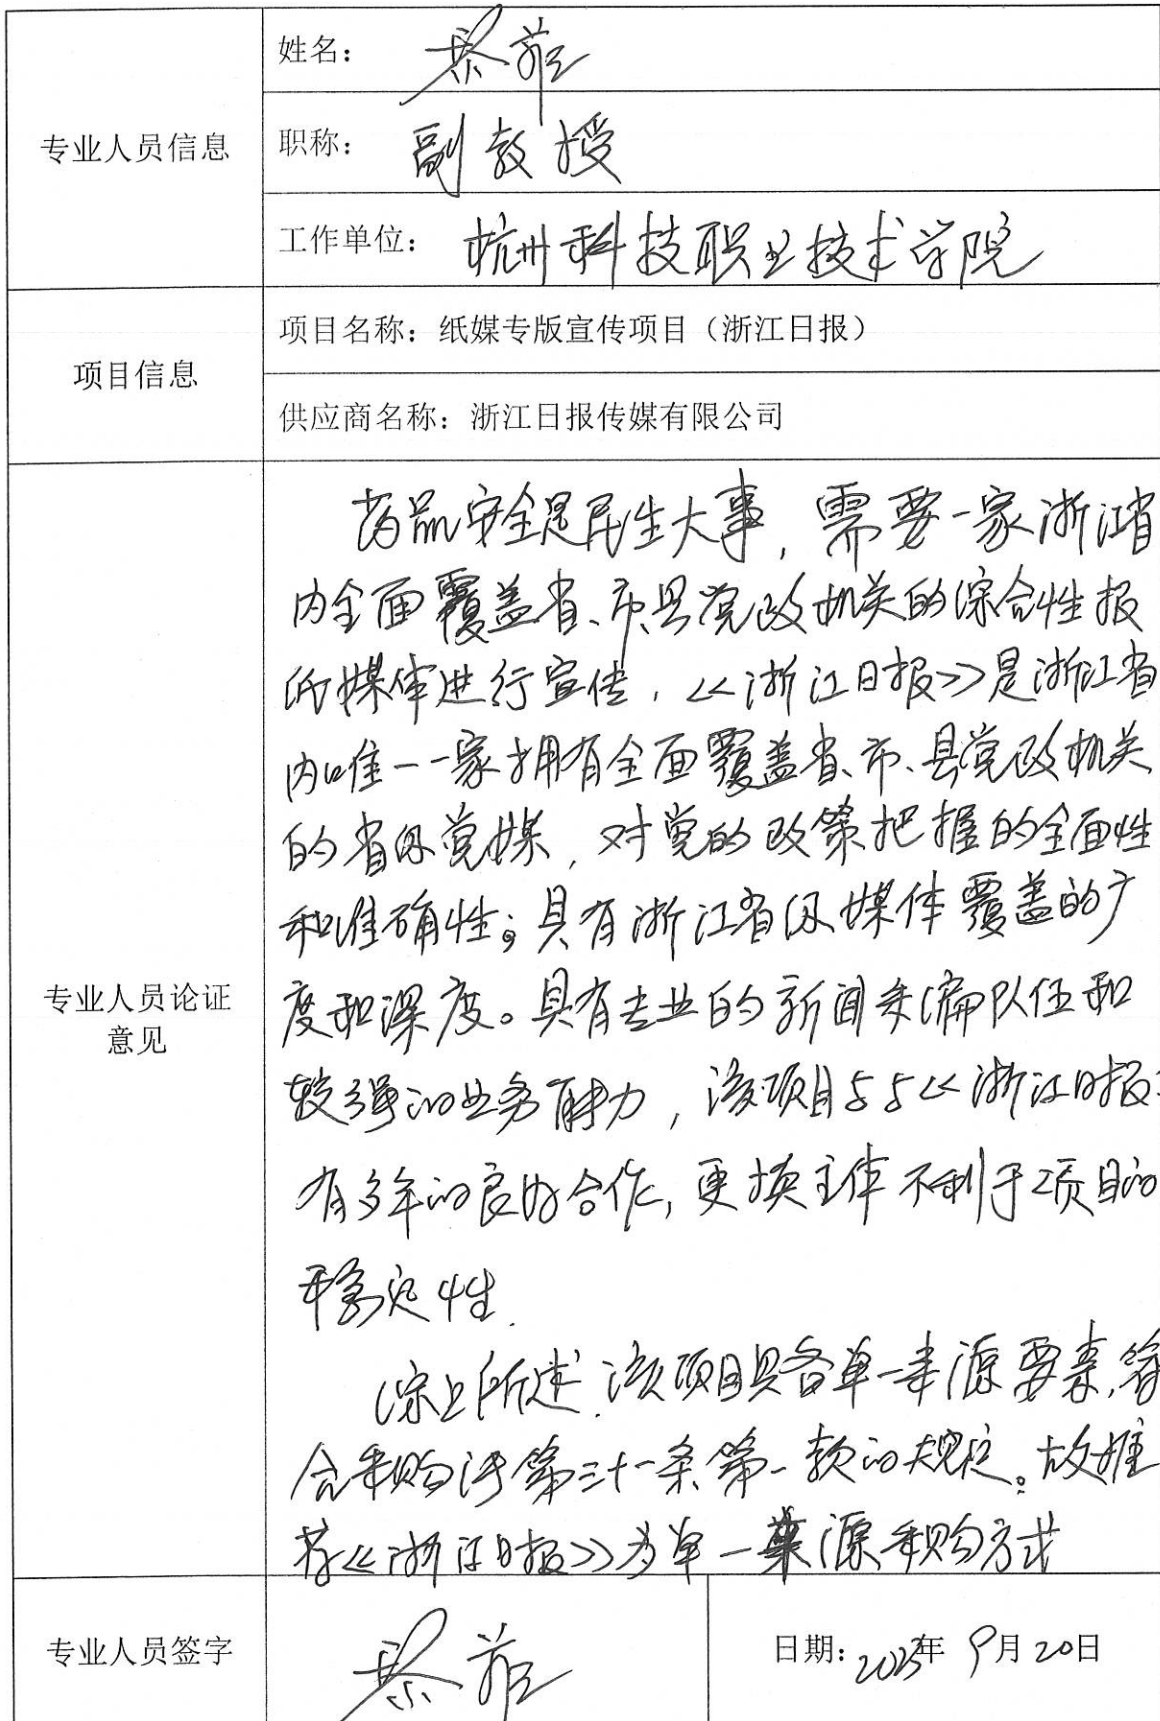 姓名：
专业人员信息
职称： 副教授
工作单位： 杭州科技职业技术学院
项目信息
项目名称：纸媒专版宣传项目（浙江日报）
供应商名称：浙江日报传媒有限公司
药品安全是民生大事，需要一家浙江省
内全面覆盖省、市、县党政机关的综合性报
纸媒体进行宣传，《浙江日报》是浙江省
内唯一一家拥有全面覆盖省、市、县党政机关
的省级党媒，对党的政策把握的全面性
和准确性；具有浙江省级媒体覆盖的广
专业人员论证
意见
度和深度。具有专业的新闻采编队伍和
较强的业务能力，该项目与《浙江日报》
有多年的良好合作，更换主体不利于项目的
稳定性.
综上所述，该项目具备单一来源要素，符
合采购法第三十一条第一款的规定。故推
荐《浙江日报》为单一来源采购方式
专业人员签字
日期：2023年9月20日